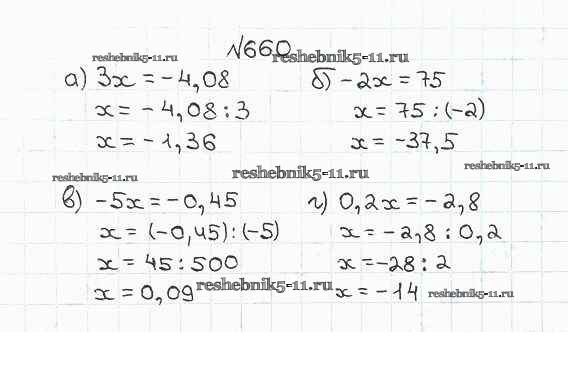 №660
reshebnik5-11.ru
reshebnik5-11.ru
а) 3x = -4,08
x = -4,08 : 3
x = -1,36
б) -2x = 75
x = 75 : (-2)
x = -37,5
reshebnik5-11.ru
reshebnik5-11.ru
reshebnik5-11.ru
в) -5x = -0,45
x = (-0,45) : (-5)
x = 45 : 500
x = 0,09
г) 0,2x = -2,8
x = -2,8 : 0,2
x = -28 : 2
x = -14
reshebnik5-11.ru
reshebnik5-11.ru